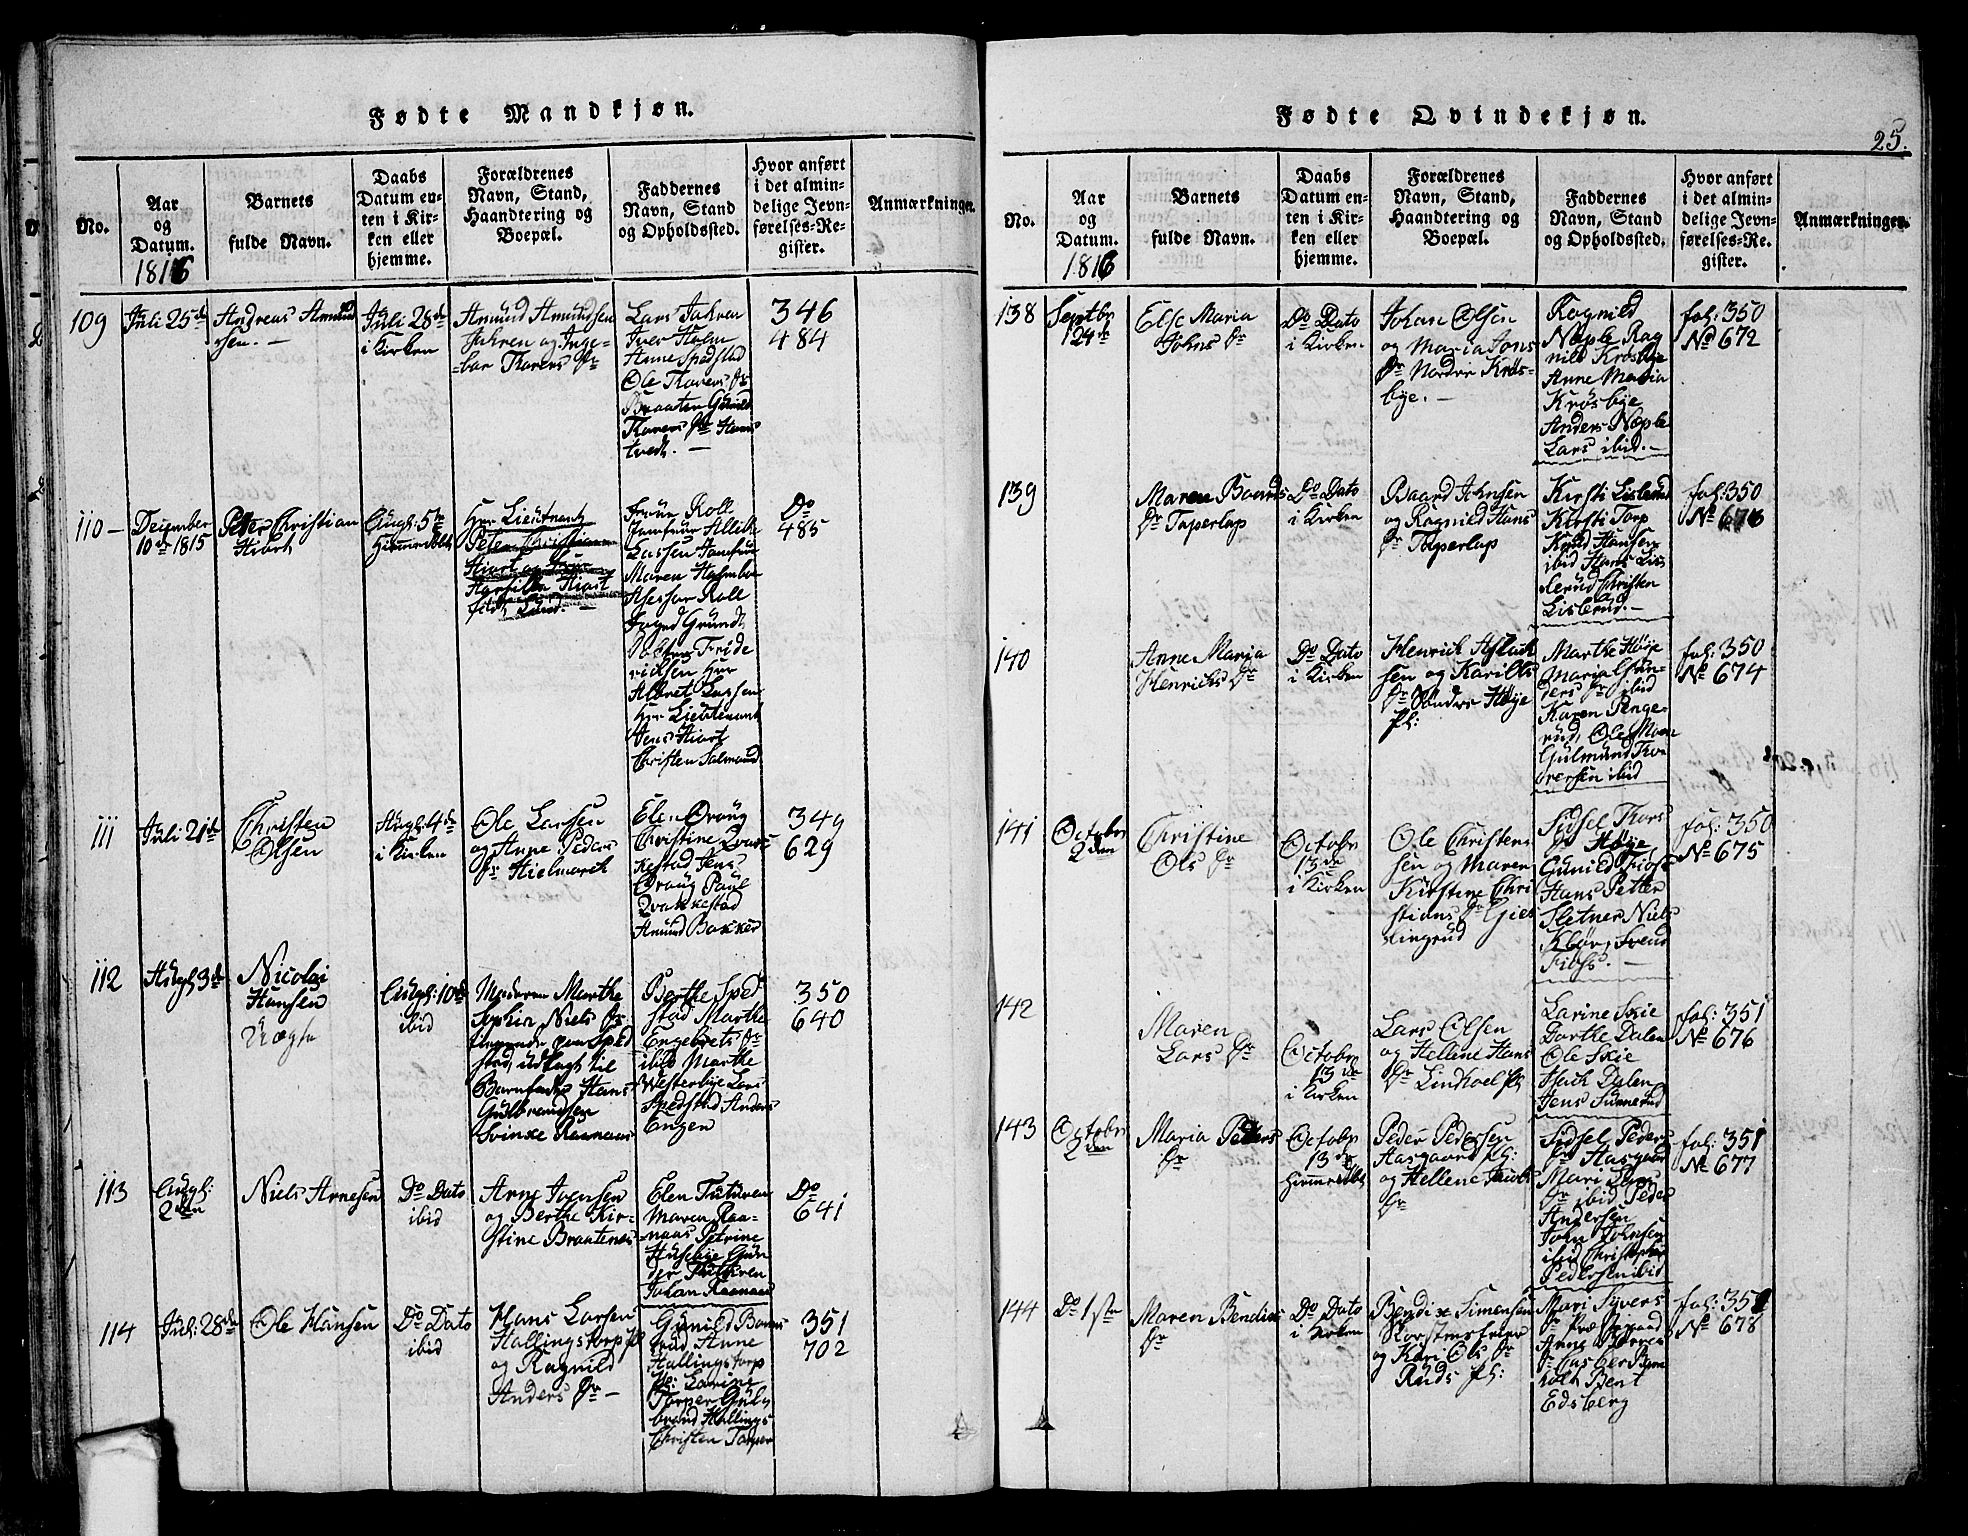 Fødte Mandkjøn.
No.
Aar
og
Datum.
1816
Barnets
fulde Navn.
Daabs
Datum en-
ten i Kir-
ken eller
hjemme.
Forældrenes
Navn, Stand,
Haandtering og
Boepæl.
Faddernes
Navn, Stand
og Opholdssted.
Hvor anført
i det almin-
delige Jevn-
førelses-Re-
gister.
Anmærkninger.
109
Juli 25de
Andreas Amund
sen. —
Juli 28de
i Kirken
Amund Amundsen
Jahren og Inge-
bar Thorers Dr
Lars Jahren
Iver Holm
Anne Spedstad
Ole Thorers
Braaten Gunild
Thorers Dr
tvedt. —
346
484
110 —
December
10de 1815
Peter Christian
Hiort
Augl: 5te
Hiemmedøbt
Herr Lieutnant
Peter Christian
Hiort og
Hiort
født Lund. —
Frue Roll
Jomfrue
Lassen Jomfrue
Maren
Assessor Roll
Foged Grundt
Fride
richsen Herr
Albret Lassen
Herr Lieutenant
Jens Hiort
Christen Salmund
Do
485
111
Juli 21de
Christen
Olsen
Augl: 4de
i Kirken
Ole Larsen
og Anne Peders
Dr Hielmarck
Elen Ovaug
Christine Qvak
kestad Jens
Ovaug Paul
Qvakkestad
Amund Bakker
349
629
112
Augl: 3de
Nicolai
Hansen
Uægte
Augl: 10de
ibid
Moderen Marthe
Sophie Niels Dr
Sped
stad, udlagt til
Barnfader Hans
Gulbrandsen
Svinke Raanaas
Berthe Sped
stad Marthe
Engebrets Dr
ibid Marthe
Westerbye Lars
Spedstad Anders
Engen
350
640
113
Augl:
2den
Niels Arnesen
Do Dato
ibid
Arne Ivensen
og Berthe Kir-
stine Braatenes
Elen Tuturen
Maren Raa-
naas Petrine
Husebye Gun
der Tuturen
Johan Raanaas
Do
641
114
Jul: 28de
Ole Hansen
Do Dato
ibid
Hans Larsen
Hallingstorp Pl
og Ragnild
Anders Dr —
Gunild
rud Anne
Hallingstorp
Pl: Larine
Torper Gul
brand Hallings
Christen Torper
351
702
Fødte Qvindekjøn.
25.
No.
Aar
og
Datum.
1816
Barnets
fulde Navn.
Daabs
Datum en-
ten i Kir-
ken eller
hjemme.
Forældrenes
Navn, Stand,
Haandtering og
Boepæl.
Faddernes
Navn, Stand
og Opholdssted.
Hvor anført
i det almin-
delige Jevn-
førelses-Re-
gister.
Anmærkninger.
138
Septbr
24de
Else Maria
Johns Dr
Do Dato
i Kirken
Johan Olsen
og Maria Jons
Dr Nordre Krøs-
bye. —
Ragnild
Næple Rag
nild Krøsbye
Anne Maria
Krøsbye
Anders Næple
Lars ibid. —
fol: 350
No 672
139
Maren Baards
Dr Taperlap
Do Dato
i Kirken
Baard Johnsen
og Ragnild Hans
Dr Taperlap
Kirsti Lislerud
Kirsti Torp
Knud Hansen
ibid Hans Lis
lerud Christen
Lislerud. —
fol: 350
No 673
140
Anne Maria
Henrichs Dr
Do Dato
i Kirken
Henrich Aslach
sen og Kari Ols
Dr Søndre Høye
Pl:
Marthe Høye
Maria
ders Dr ibid
Karen Penge
rud, Ole Moen
Gulmund Tho
resen ibid
fol: 350
No 674
141
Octobr
2den
Christine
Ols Dr
Octobr
13de
i Kirken
Ole Christen
sen og Maren
Kirstine Chri
stians Dr Gies
lingrud
Sidsel Thors
Dr Høye
Gunild Fiøss
Hans Petter
Sletner Niels
Kbør, Svend
Fiøss. —
fol: 350
No 675
142
Maren
Lars Dr
Octobr
13de
i Kirken
Lars Olsen
og Hellene Hans
Dr Lindhoel Pl
Larine Skie
Dorthe Dalen
Ole Skie
Isach Dalen
Jens Sunnerud
fol: 351
No 676
143
Octobr
2den
Maria Peders
Dr
Octobr
13de
Hiemmedøbt
Peder Pedersen
Aasgaard Pl:
og Hellene Jacobs
Dr
Sidsel Peders
Dr Aasgaard
Mari Lars
Dr ibid Peder
Andersen
John Johnsen
ibid Christopher
Pedersen ibid
fol: 351
No 677
144
Do 1ste
Maren Bendix
Dr
Do Dato
i Kirken
Bendix Simensen
Korstensfeier
og Kari Ols Dr
Ruds Pl:
Mari Syvers
Dr Præstegaard
Anne
Dr
holt Bent
Edsberg
fol: 351
No 678